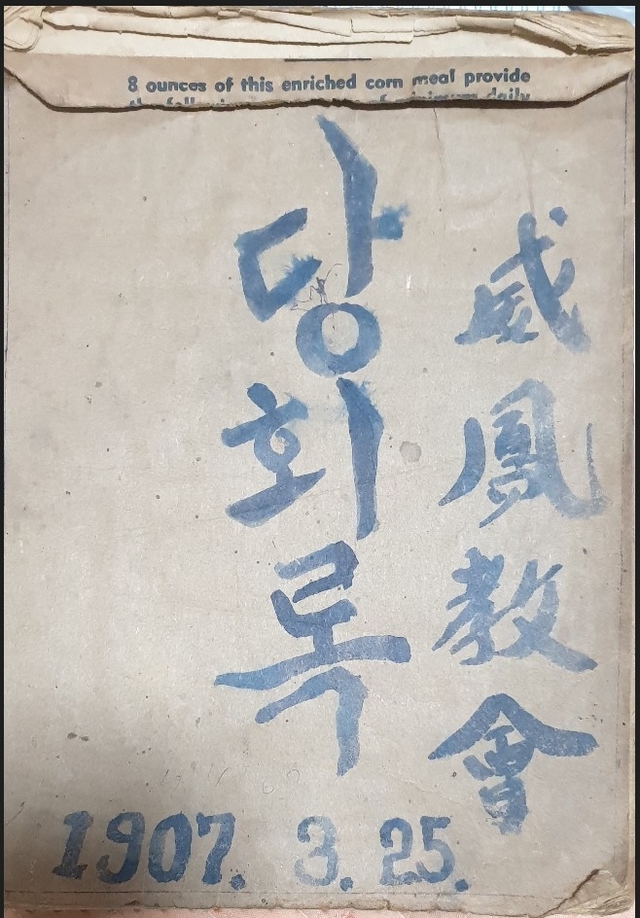 8 ounces of this enriched corn meal provide
威鳳教會
당회록
1907. 3. 25.